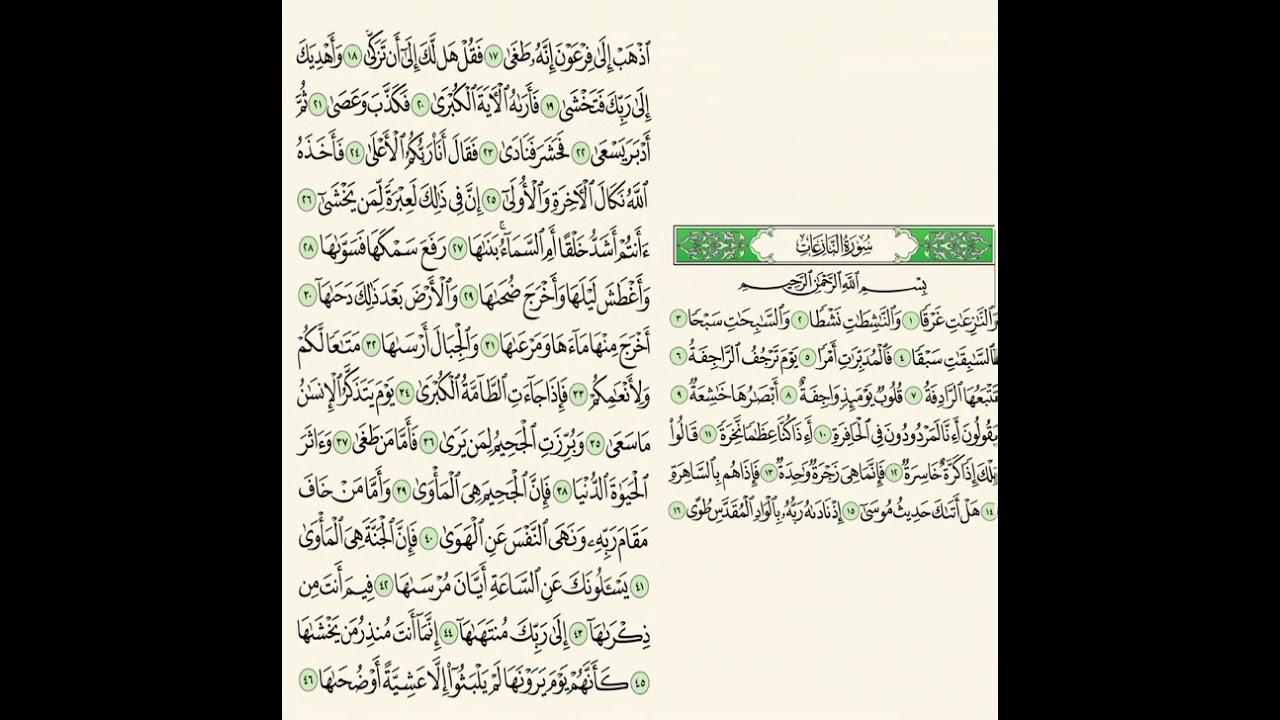 سُورَةُ النَّازِعَاتِ
بِسْمِ اللَّهِ الرَّحْمَٰنِ الرَّحِيمِ
وَالنَّازِعَاتِ غَرْقًا ١ وَالنَّاشِطَاتِ نَشْطًا ٢ وَالسَّابِحَاتِ سَبْحًا ٣
فَالسَّابِقَاتِ سَبْقًا ٤ فَالْمُدَبِّرَاتِ أَمْرًا ٥ يَوْمَ تَرْجُفُ الرَّاجِفَةُ ٦
تَتْبَعُهَا الرَّادِفَةُ ٧ قُلُوبٌ يَوْمَئِذٍ وَاجِفَةٌ ٨ أَبْصَارُهَا خَاشِعَةٌ ٩
يَقُولُونَ أَءِنَّا لَمَرْدُودُونَ فِي الْحَافِرَةِ ١٠ أَءِذَا كُنَّا عِظَامًا نَّخِرَةً ١١ قَالُوا
تِلْكَ إِذًا كَرَّةٌ خَاسِرَةٌ ١٢ فَإِنَّمَا هِيَ زَجْرَةٌ وَاحِدَةٌ ١٣ فَإِذَا هُم بِالسَّاهِرَةِ
١٤ هَلْ أَتَاكَ حَدِيثُ مُوسَىٰ ١٥ إِذْ نَادَاهُ رَبُّهُ بِالْوَادِ الْمُقَدَّسِ طُوًى ١٦
اذْهَبْ إِلَىٰ فِرْعَوْنَ إِنَّهُ طَغَىٰ ١٧ فَقُلْ هَل لَّكَ إِلَىٰ أَن تَزَكَّىٰ ١٨ وَأَهْدِيَكَ
إِلَىٰ رَبِّكَ فَتَخْشَىٰ ١٩ فَأَرَاهُ الْآيَةَ الْكُبْرَىٰ ٢٠ فَكَذَّبَ وَعَصَىٰ ٢١ ثُمَّ
أَدْبَرَ يَسْعَىٰ ٢٢ فَحَشَرَ فَنَادَىٰ ٢٣ فَقَالَ أَنَا رَبُّكُمُ الْأَعْلَىٰ ٢٤ فَأَخَذَهُ
اللَّهُ نَكَالَ الْآخِرَةِ وَالْأُولَىٰ ٢٥ إِنَّ فِي ذَٰلِكَ لَعِبْرَةً لِّمَن يَخْشَىٰ ٢٦
ءَأَنتُمْ أَشَدُّ خَلْقًا أَمِ السَّمَاءُ ۚ بَنَاهَا ٢٧ رَفَعَ سَمْكَهَا فَسَوَّاهَا ٢٨
وَأَغْطَشَ لَيْلَهَا وَأَخْرَجَ ضُحَاهَا ٢٩ وَالْأَرْضَ بَعْدَ ذَٰلِكَ دَحَاهَا ٣٠
أَخْرَجَ مِنْهَا مَاءَهَا وَمَرْعَاهَا ٣١ وَالْجِبَالَ أَرْسَاهَا ٣٢ مَتَاعًا لَّكُمْ
وَلِأَنْعَامِكُمْ ٣٣ فَإِذَا جَاءَتِ الطَّامَّةُ الْكُبْرَىٰ ٣٤ يَوْمَ يَتَذَكَّرُ الْإِنسَانُ
مَا سَعَىٰ ٣٥ وَبُرِّزَتِ الْجَحِيمُ لِمَن يَرَىٰ ٣٦ فَأَمَّا مَن طَغَىٰ ٣٧ وَءَاثَرَ
الْحَيَاةَ الدُّنْيَا ٣٨ فَإِنَّ الْجَحِيمَ هِيَ الْمَأْوَىٰ ٣٩ وَأَمَّا مَنْ خَافَ
مَقَامَ رَبِّهِ وَنَهَى النَّفْسَ عَنِ الْهَوَىٰ ٤٠ فَإِنَّ الْجَنَّةَ هِيَ الْمَأْوَىٰ
٤١ يَسْـَٔلُونَكَ عَنِ السَّاعَةِ أَيَّانَ مُرْسَاهَا ٤٢ فِيمَ أَنتَ مِن
ذِكْرَاهَا ٤٣ إِلَىٰ رَبِّكَ مُنتَهَاهَا ٤٤ إِنَّمَا أَنتَ مُنذِرُ مَن يَخْشَاهَا
٤٥ كَأَنَّهُمْ يَوْمَ يَرَوْنَهَا لَمْ يَلْبَثُوا إِلَّا عَشِيَّةً أَوْ ضُحَاهَا ٤٦